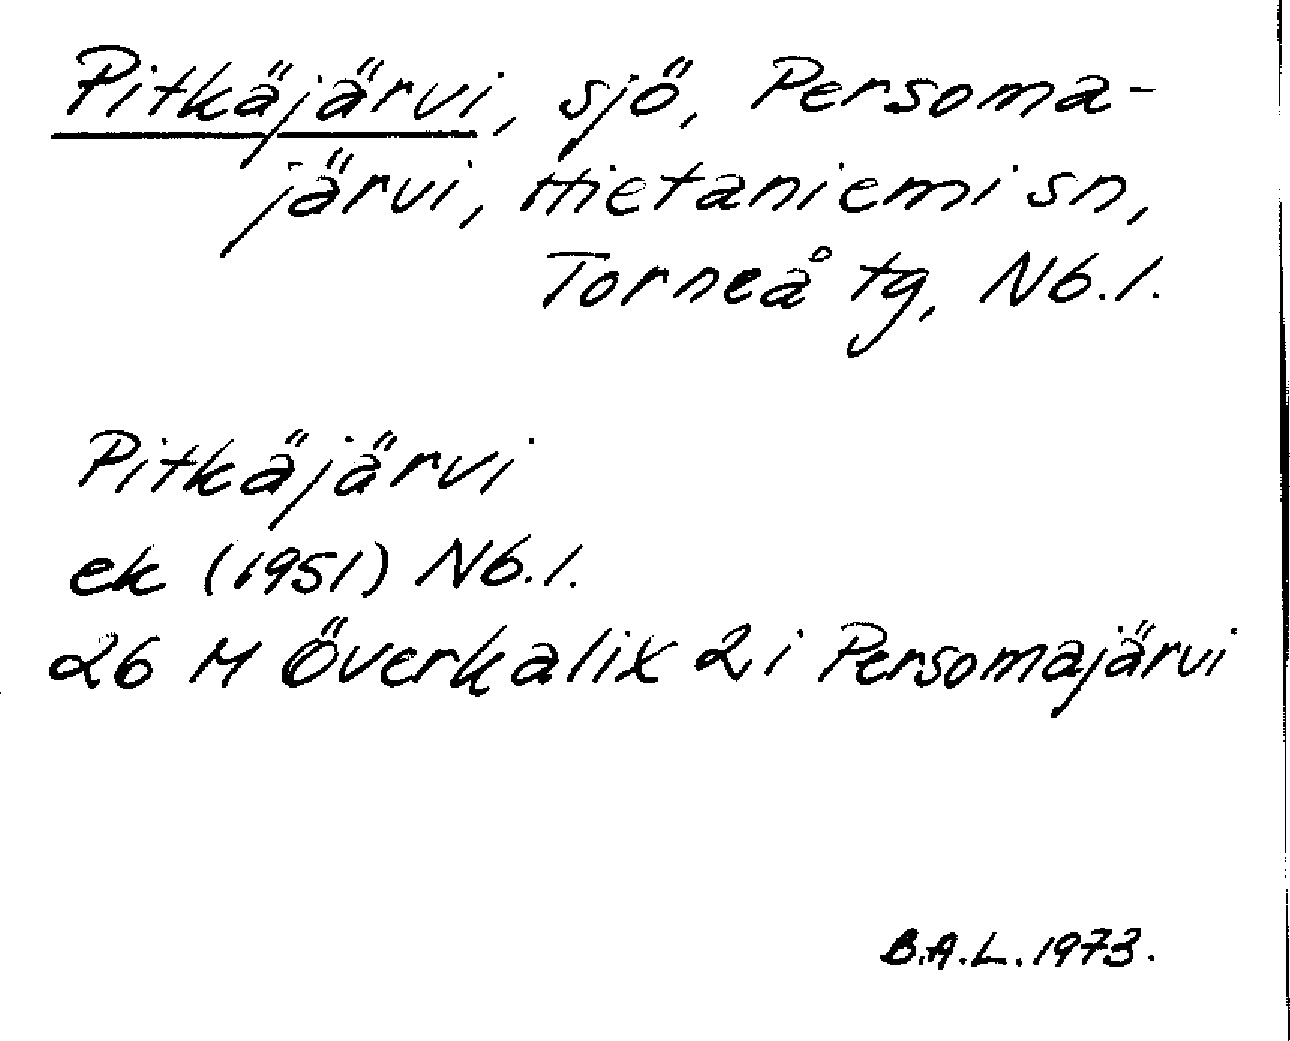 Pitkäjärvi, sjö, Persoma-
järvi, Hietaniemi sn,
Torneå tg, Nb.l.
Pitkäjärvi
ek (1951) Nb.l.
26 M Överkalix 2 i Persomajärvi
B.A.L. 1973.